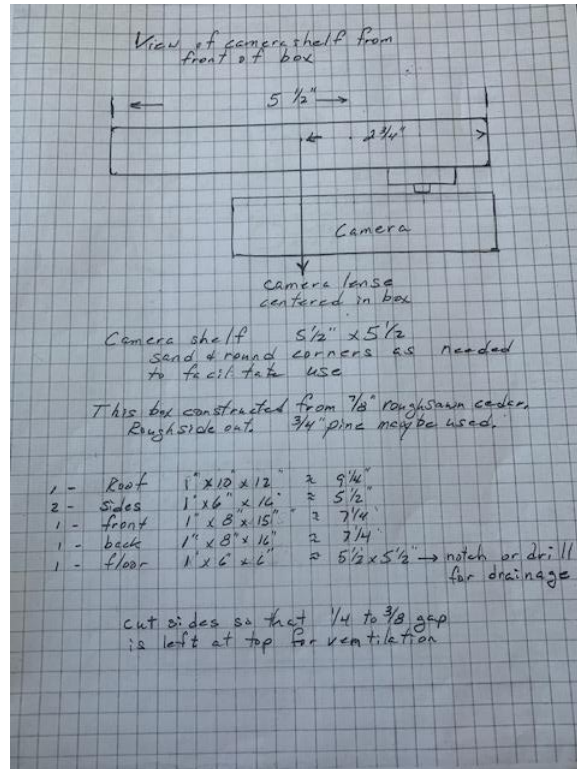 View of camera shelf from
front of box
5 1/2"
2 3/4"
Camera
camera lense
centered in box
Camera shelf 5 1/2" x 5 1/2
sand & round corners as needed
to facilitate use
This box constructed from 7/8" roughsawn cedar.
Rough side out. 3/4" pine maybe used.
1 - Roof 1" x 10" x 12" ≈ 9 1/4"
2 - sides 1" x 6" x 16" ≈ 5 1/2"
1 - front 1" x 8" x 15" ≈ 7 1/4"
1 - back 1" x 8" x 16" ≈ 7 1/4"
1 - floor 1" x 6" x 6" ≈ 5 1/2 x 5 1/2" → notch or drill
for drainage
cut sides so that 1/4 to 3/8 gap
is left at top for ventilation